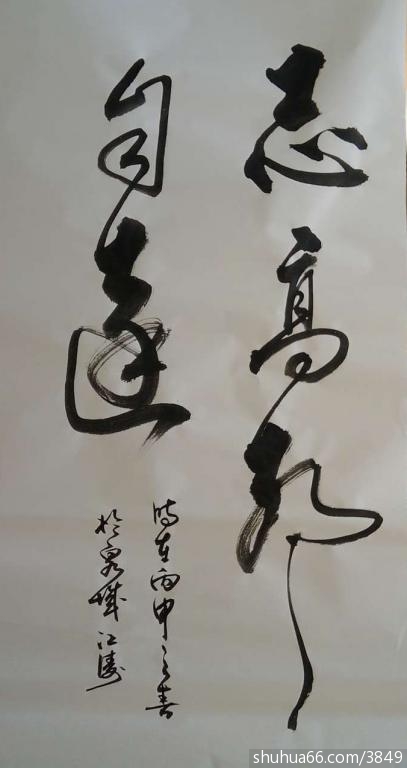 志高
自遠
時在丙申之春
於泉城 江濤
shuhua66.com/3849